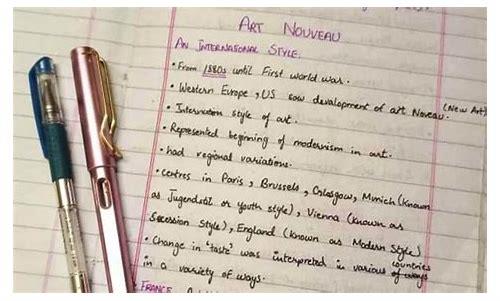 ART NOUVEAU
AN INTERNASIONAL STYLE.
• From 1880s until First world war.
• Western Europe, US saw development of art Noveau. (New Art)
• Intervision style of art.
• Represented beginning of modernism in art.
• had regional variations.
• centres in Paris, Brussels, Glasgow, Munich (known
as Jugendstil or youth style), Vienna (known as
Secession Style), England (known as Modern Style)
• Change in 'taste' was interpreted in various countries
in a variety of ways.
• FRANCE